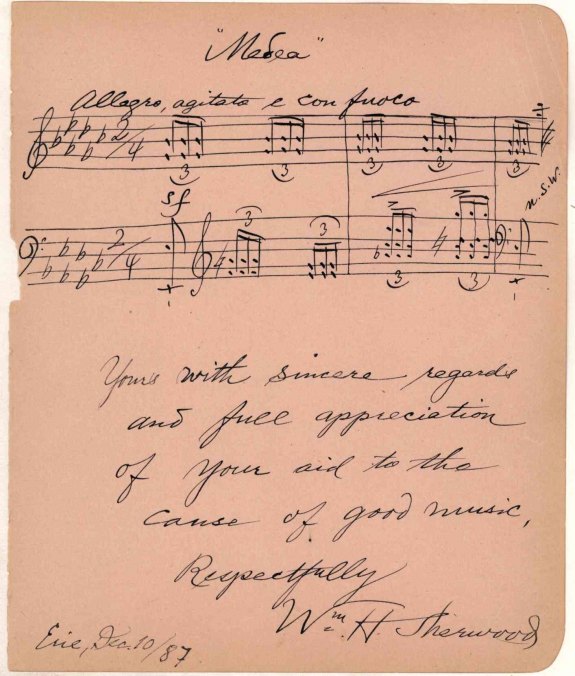 "Medea"
Allegro, agitato e con fuoco
2/4
3 3 3 3 3
sf
W.S.W.
2/4
3 3 3 3
Yours with sincere regards
and full appreciation
of your aid to the
cause of good music,
Respectfully
Wm. H. Sherwood
Erie, Dec. 10/87